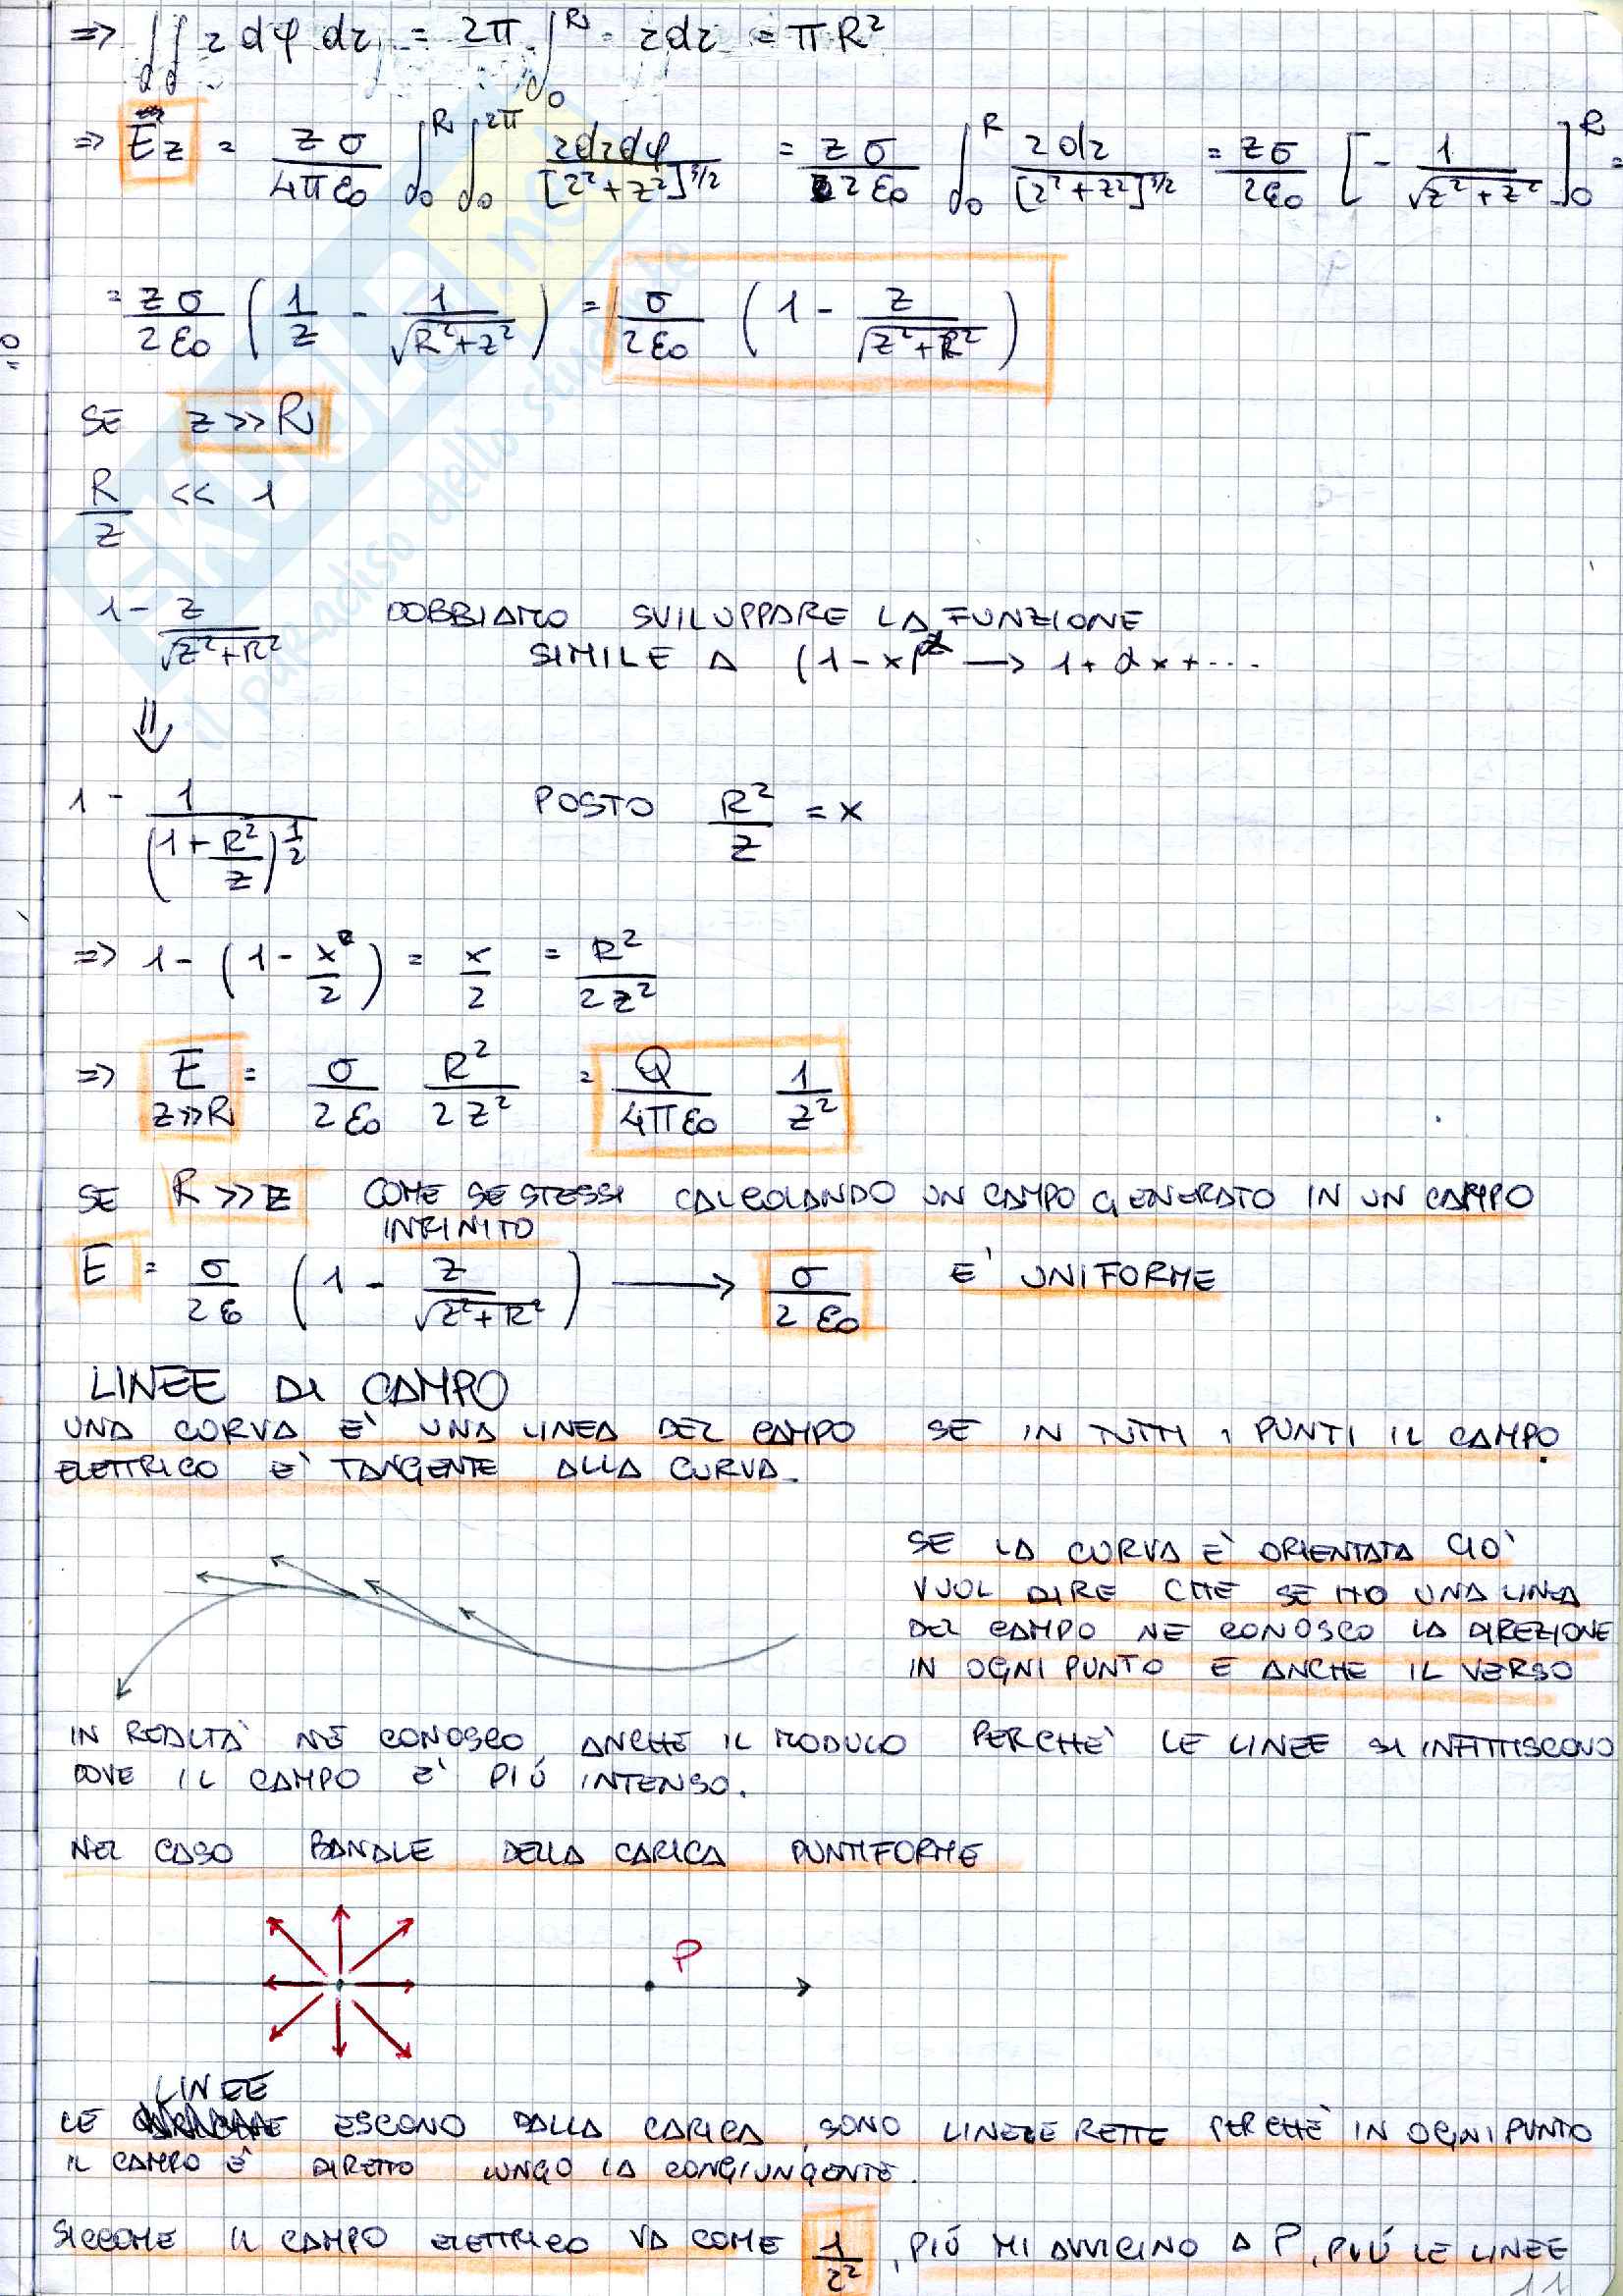 => ∬ r dφ dr = 2π ∫₀ᴿ r dr = πR²
=> E⃗z = zσ/4πε₀ ∫₀ᴿ ∫₀²ᵖⁱ r dr dφ/[r²+z²]^3/2 = zσ/2ε₀ ∫₀ᴿ r dr/[r²+z²]^3/2 = zσ/2ε₀ [- 1/√r²+z²]₀ᴿ =
= zσ/2ε₀ (1/z - 1/√R²+z²) = σ/2ε₀ (1 - z/√z²+R²)
SE z >> R
R/z << 1
1 - z/√z²+R² DOBBIAMO SVILUPPARE LA FUNZIONE
SIMILE A (1-x)^α → 1 + αx + ...
⇓
1 - 1/(1+R²/z)^1/2 POSTO R²/z = x
=> 1 - (1 - x/2) = x/2 = R²/2z²
=> E z>>R = σ/2ε₀ R²/2z² = Q/4πε₀ 1/z²
SE R >> z COME SE STESSI CALCOLANDO UN CAMPO GENERATO IN UN CAMPO
INFINITO
E = σ/2ε (1 - z/√z²+R²) → σ/2ε₀ E' UNIFORME
LINEE DI CAMPO
UNA CURVA E' UNA LINEA DEL CAMPO SE IN TUTTI I PUNTI IL CAMPO
ELETTRICO E' TANGENTE ALLA CURVA.
SE LA CURVA E' ORIENTATA CIO'
VUOL DIRE CHE SE HO UNA LINEA
DEL CAMPO NE CONOSCO LA DIREZIONE
IN OGNI PUNTO E ANCHE IL VERSO
IN REALTA' NE CONOSCO ANCHE IL MODULO PERCHE' LE LINEE SI INFITTISCONO
DOVE IL CAMPO E' PIÚ INTENSO.
NEL CASO BANALE DELLA CARICA PUNTIFORME
P
LINEE
LE ESCONO DALLA CARICA, SONO LINEE RETTE PERCHE' IN OGNI PUNTO
IL CAMPO E' DIRETTO LUNGO LA CONGIUNGENTE.
SICCOME IL CAMPO ELETTRICO VA COME 1/r², PIÚ MI AVVICINO A P, PIÚ LE LINEE
11
il paradiso dello studente